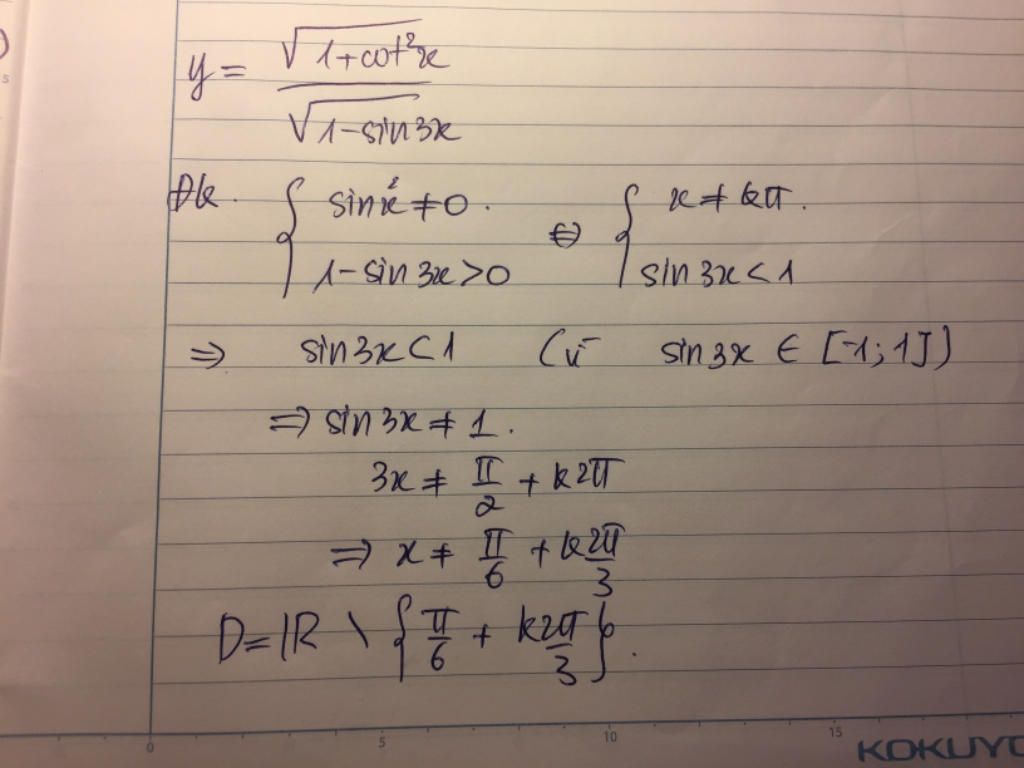 y = √(1+cot²x) / √(1-sin3x)
Đk. { sin²x ≠ 0. ⇔ { x ≠ kπ.
1-sin3x>0 sin3x<1
⇒ sin3x<1 (vì sin3x ∈ [-1;1])
⇒ sin3x ≠ 1.
3x ≠ π/2 + k2π
⇒ x ≠ π/6 + k2π/3
D=ℝ \ {π/6 + k2π/3}.
0 5 10 15
KOKUYO